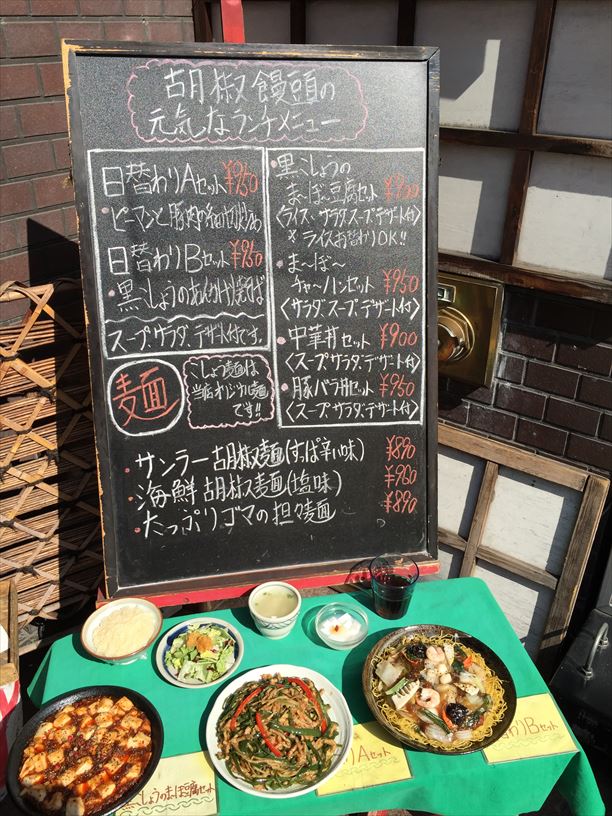 胡椒饅頭の
元気なランチメニュー
日替わりAセット ¥950
・ピーマンと豚肉の細切り炒め
日替わりBセット ¥950
・黒こしょうのあんかけ焼そば
スープ、サラダ、デザート付です。
麺
こしょう麺は
当店オリジナル麺
です!!
・黒こしょうの
まーぼ豆腐セット ¥900
〈ライス、サラダ、スープ、デザート付〉
※ライスお替わりOK!!
・まーぼー
チャーハンセット ¥950
〈サラダ、スープ、デザート付〉
・中華丼セット ¥900
〈スープ、サラダ、デザート付〉
・豚バラ丼セット ¥950
〈スープ、サラダ、デザート付〉
・サンラー胡椒麺(すっぱ辛い味) ¥890
・海鮮胡椒麺(塩味) ¥960
・たっぷりゴマの担々麺 ¥890
こしょうのまーぼ豆腐セット
Aセット
わりBセット